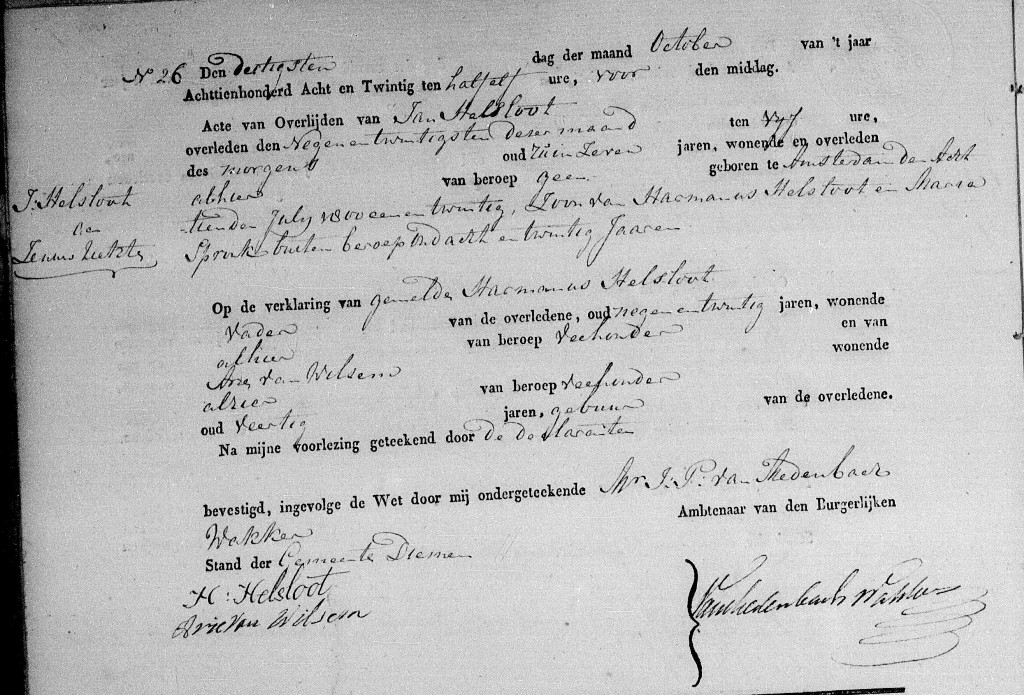 No 26 Den dertigsten dag der maand October van 't jaar
Achttienhonderd Acht en Twintig ten half elf ure, voor den middag.
Acte van Overlijden van Jan Helsloot
overleden den Negen en twintigsten deser maand ten Vyf ure,
des morgens oud ruim Zeven jaren, wonende en overleden
alhier van beroep geen geboren te Amsterdam den Acht
tienden July 1800 een en twintig, Zoon van Harmanus Helsloot en Maria
Spronk buiten beroep oud acht en twintig Jaaren
J: Helsloot
aan
Op de verklaring van gemelde Harmanus Helsloot
Vader van de overledene, oud negen en twintig jaren, wonende
alhier van beroep Veehouder en van
Arie van Wilsem wonende
alhier van beroep veehouder
oud veertig jaren, gebuur van de overledene.
Na mijne voorlezing geteekend door de declaranten
bevestigd, ingevolge de Wet door mij ondergeteekende Mr J: P: van Hedenbach
Wakker Ambtenaar van den Burgerlijken
Stand der Gemeente Diemen
H: Helsloot
Arie van Wilsem
van hedenbach Wakker